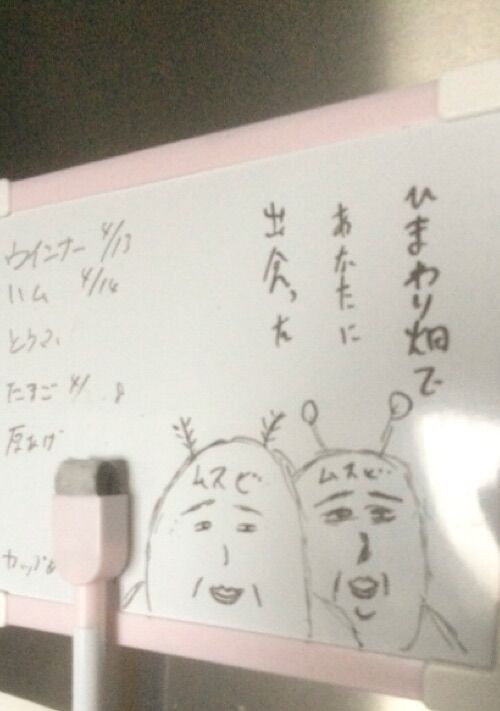 ひまわり畑で
あなたに
出会った
ウインナー 4/13
ハム 4/14
たまご 4/ 8
厚あげ
ムスビ
ムスビ